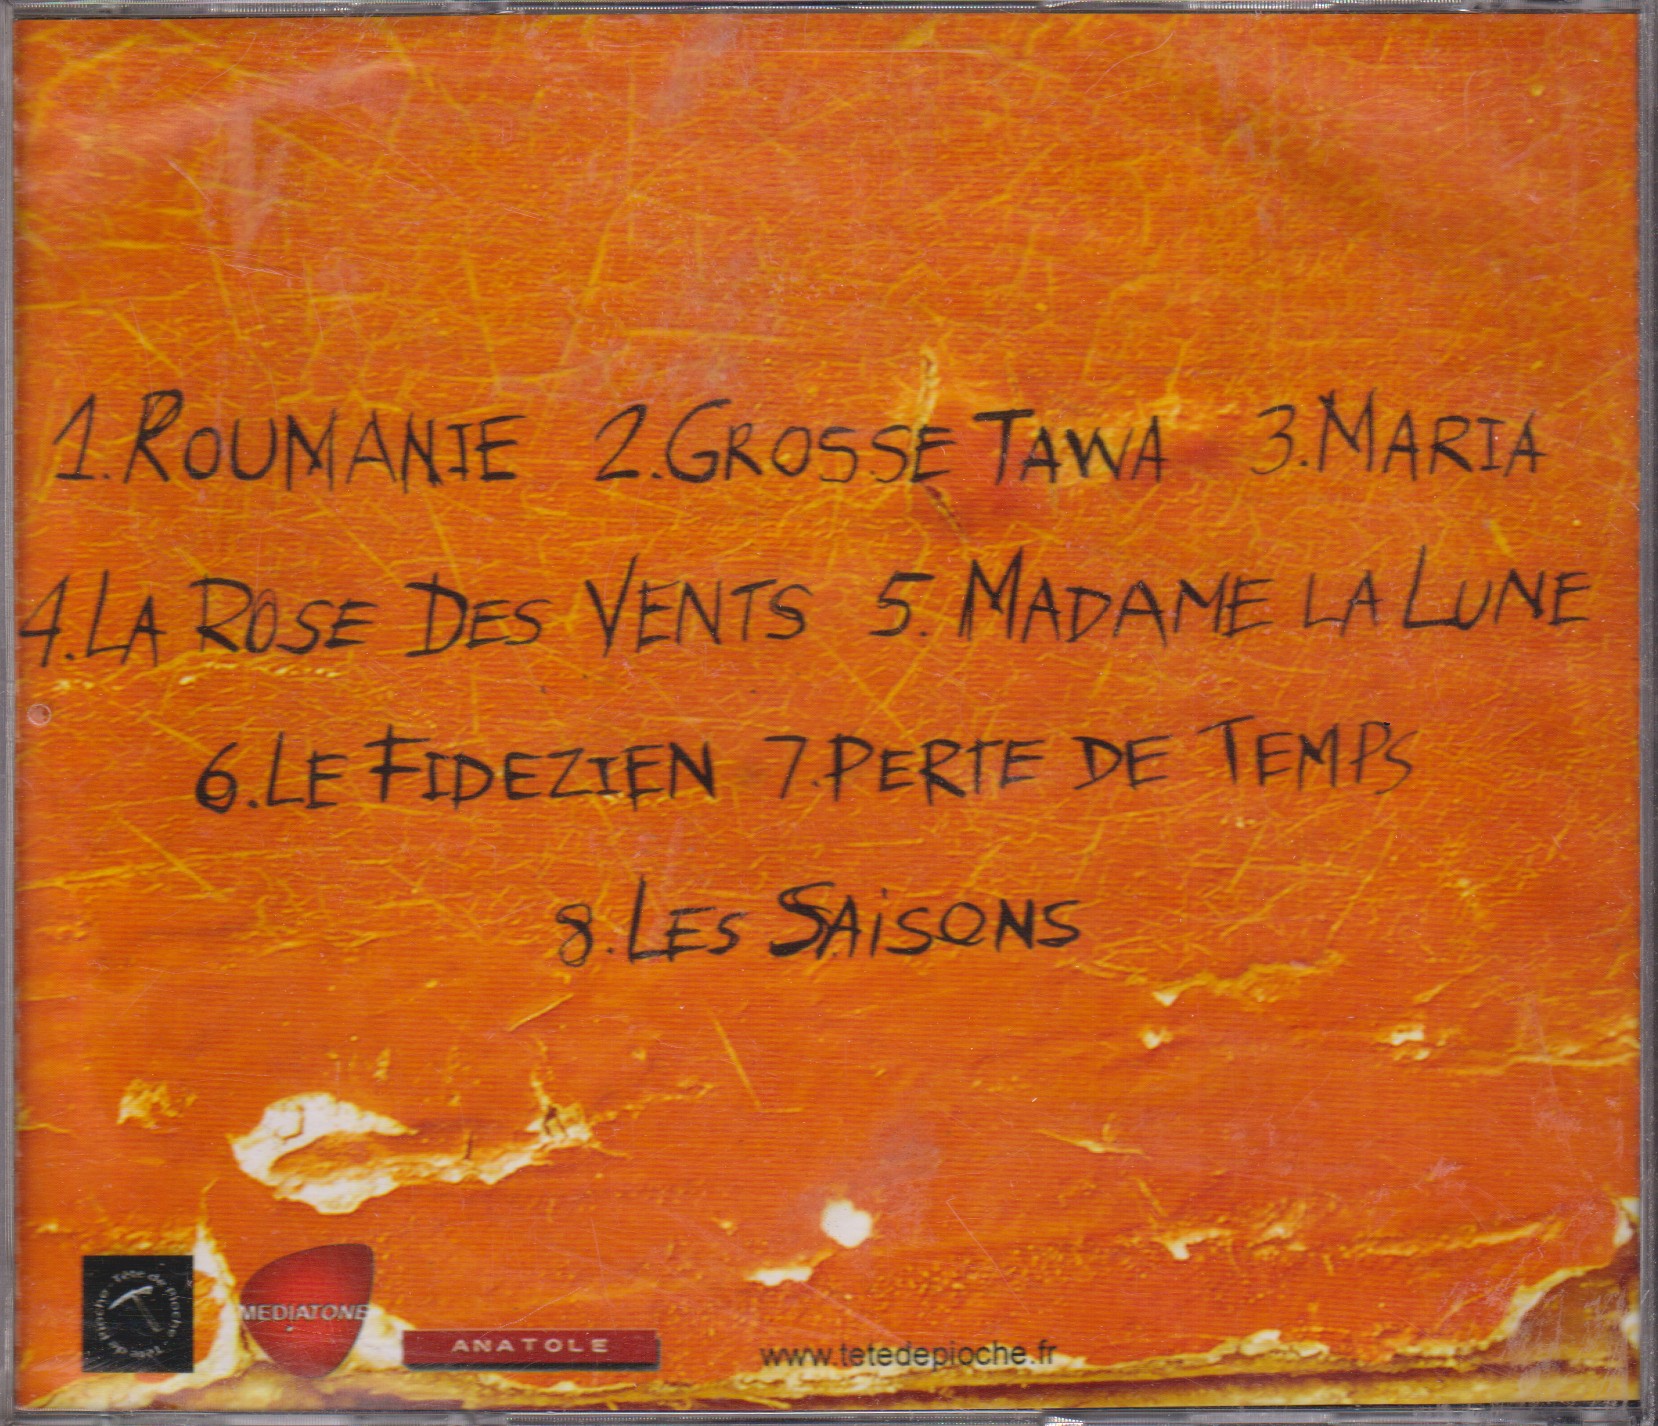 1.ROUMANIE 2.GROSSE TAWA 3.MARIA
4.LA ROSE DES VENTS 5. MADAME LA LUNE
6.LE FIDEZIEN 7.PERTE DE TEMPS
8.LES SAiSONS
Tête de Pioche - Tête de Pioche -
MEDIATONE
ANATOLE
www.tetedepioche.fr